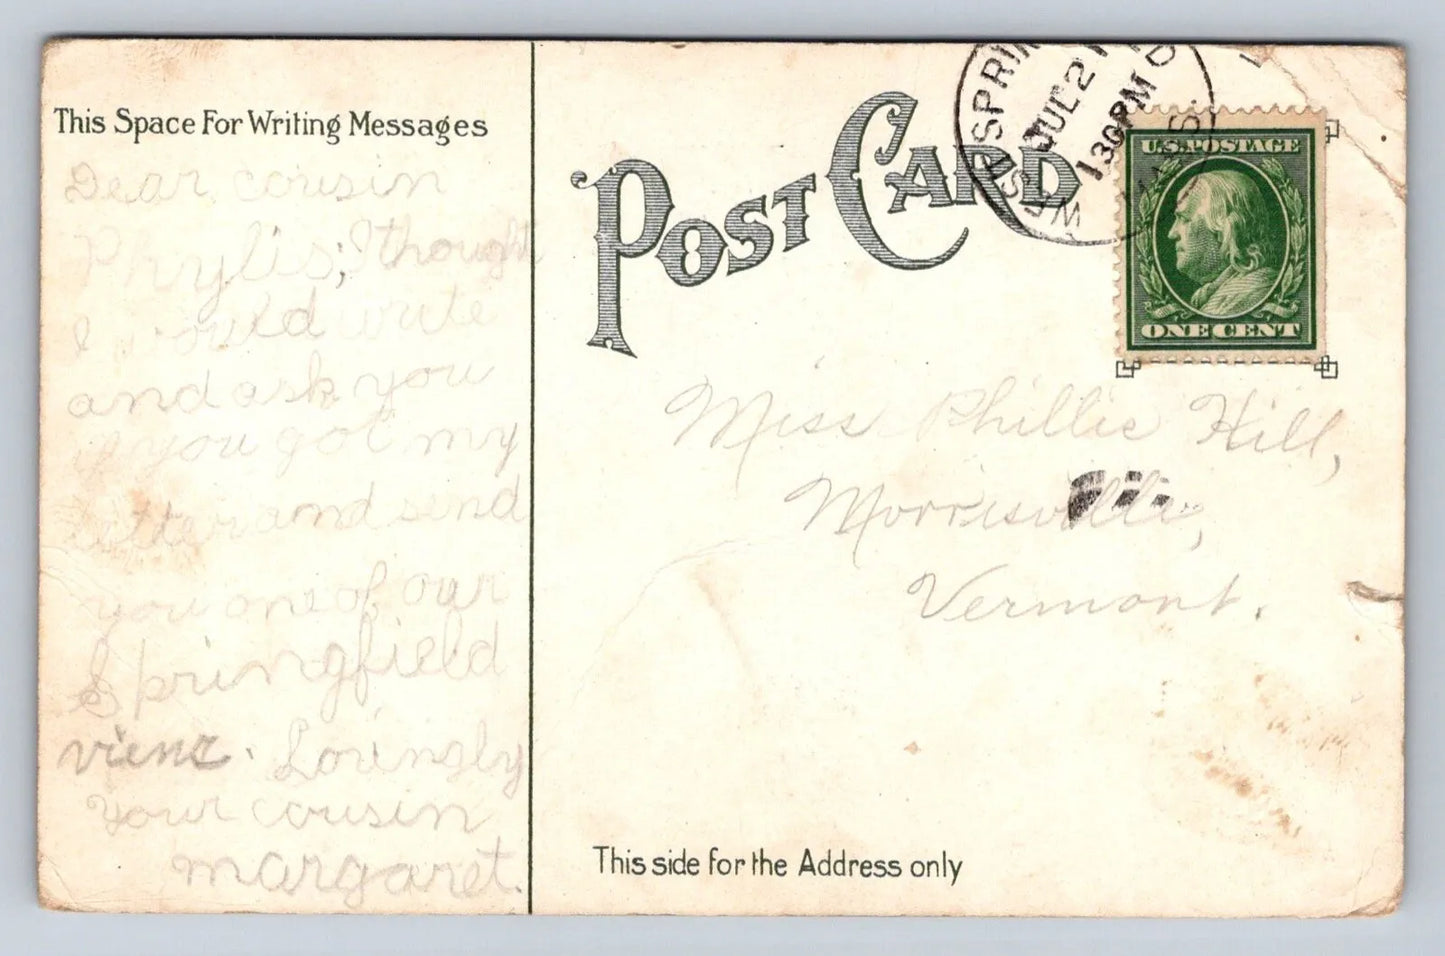 This Space For Writing Messages
Dear cousin
Phylis; I thought
I would write
and ask you
if you got my
letter and send
you one of our
Springfield
viens. Lovingly
your cousin
margaret.
POST CARD
WEST SPRIN D
JUL 21
130 PM
MASS
U.S. POSTAGE
ONE CENT
Miss Phillis Hill,
Morrisville,
Vermont.
This side for the Address only